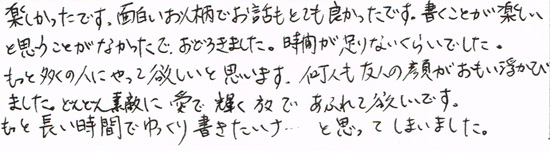 楽しかったです。面白いお人柄でお話もとても良かったです。書くことが楽しい
と思うことがなかったで、おどろきました。時間が足りないくらいでした。
もっと多くの人にやって欲しいと思います。何人も友人の顔がおもい浮かび
ました。どんどん素敵に 愛で 輝く 放で あふれて欲しいです。
もっと長い時間でゆっくり書きたいナ… と思ってしまいました。